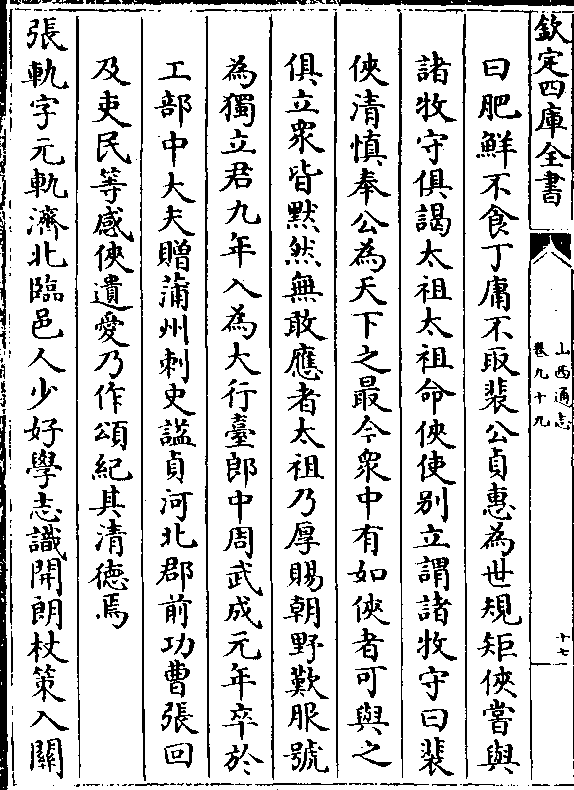 欽定四庫全書
山西通志
卷九十九
十七
曰肥鮮不食丁庸不取裴公貞惠為世規矩俠嘗與
諸牧守俱謁太祖太祖命俠使别立謂諸牧守曰裴
俠清慎奉公為天下之最今衆中有如俠者可與之
俱立衆皆默然無敢應者太祖乃厚賜朝野歎服號
為獨立君九年入為大行臺郎中周武成元年卒於
工部中大夫贈蒲州刺史諡貞河北郡前功曹張回
及吏民等感俠遺愛乃作頌紀其清德焉
張軌字元軌濟北臨邑人少好學志識開朗杖策入關